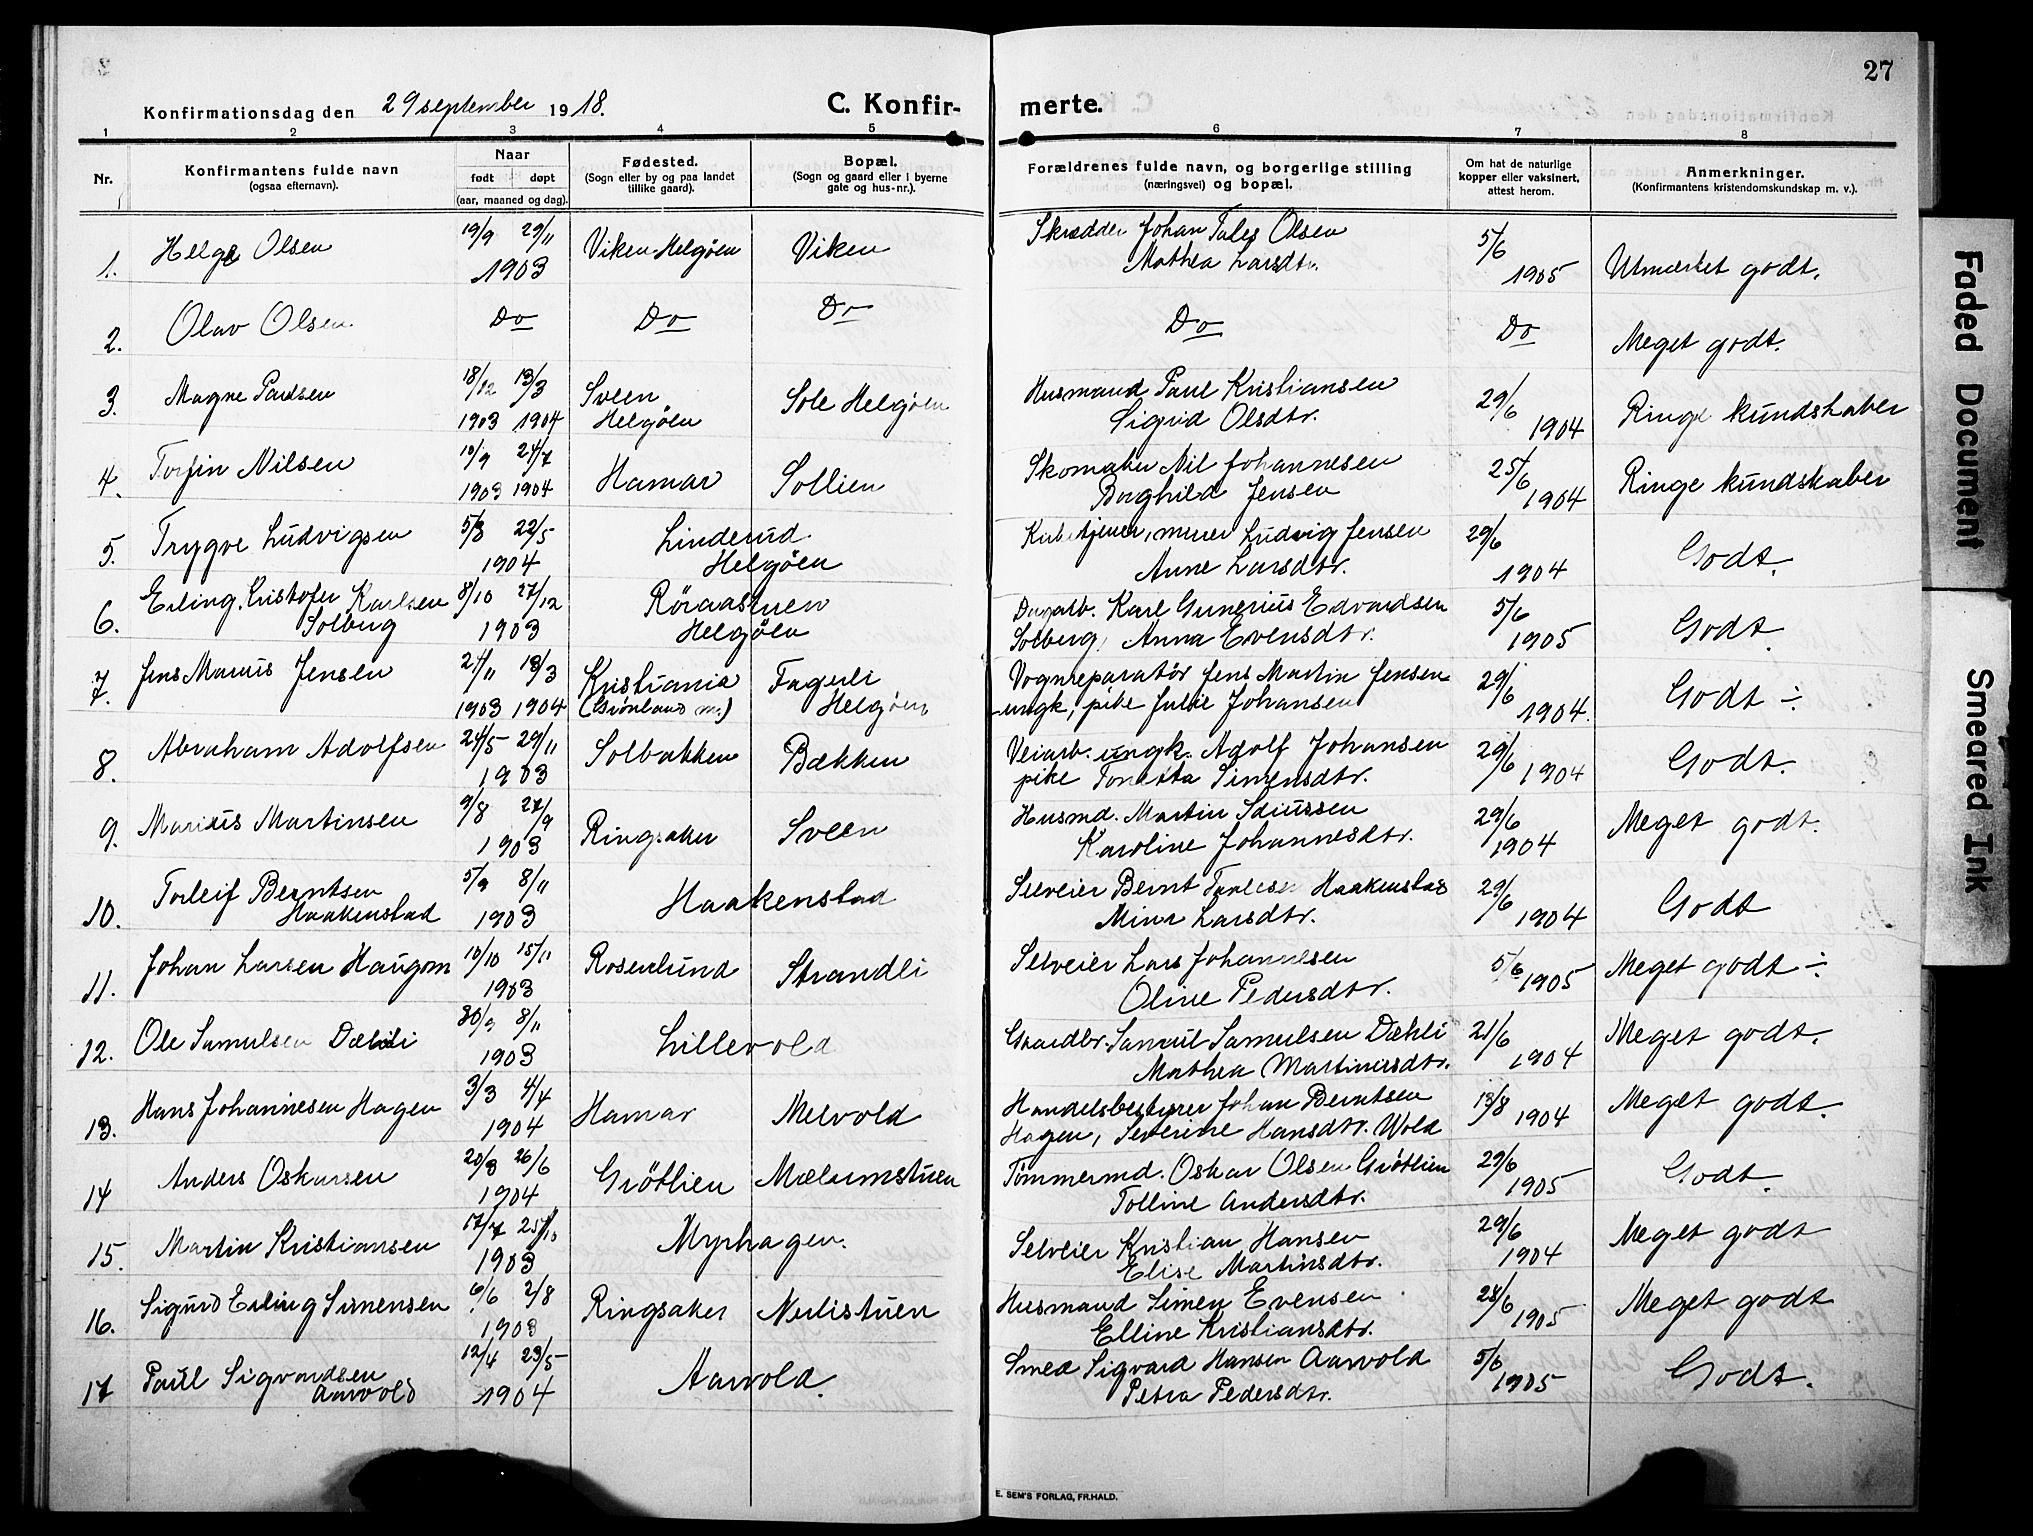 27
Konfirmationsdag den 29 september 1918.
C. Konfir- merte.
1 2 3 4 5 6 7 8
Nr.
Konfirmantens fulde navn
(ogsaa efternavn).
Naar
født døpt
(aar, maaned og dag).
Fødested.
(Sogn eller by og paa landet
tillike gaard).
Bopæl.
(Sogn og gaard eller i byerne
gate og hus-nr.).
Forældrenes fulde navn, og borgerlige stilling
(næringsvei) og bopæl.
Om hat de naturlige
kopper eller vaksinert,
attest herom.
Anmerkninger.
(Konfirmantens kristendomskundskap m. v.).
1. Helge Olsen 19/9 29/11 1903 Viken-Helgøen Viken Skrædder Johan Olsen
Mathea Larsdtr. 5/6 1905 Utmerket godt.
2. Olav Olsen Do Do Do Do Do Meget godt.
3. Magne Paulsen 18/12 1903 13/3 1904 Sveen Helgøen Sole Helgøen Husmand Paul Kristiansen
Sigrid Olsdtr. 29/6 1904 Ringe kundskaber
4. Torfin Nilsen 10/9 1903 24/7 1904 Hamar Sollien Skomaker Nil Johannesen
Borghild Jensen 25/6 1904 Ringe kundskaber
5. Trygve Ludvigsen 5/3 22/5 1904 Linderud
Helgøen Kirketjener, murer Ludvig Jensen
Anne Larsdtr. 29/6 1904 Godt.
6. Erling Kristofer Karlsen
Solberg 8/10 27/12 1903 Røraastuen
Helgøen Dagarb. Karl Gunerius Edvardsen
Solberg, Anna Evensdtr. 5/6 1905 Godt.
7. Jens Marius Jensen 24/11 1903 13/3 1904 Kristiania
(Grønland m.) Faguli
Helgøen Vognreparatør Jens Martin Jensen
ungk, pike Julie Johansen 29/6 1904. Godt ÷
8. Abraham Adolfsen 24/5 29/11 1903 Solbakken Bækken Veiarb. ungk. Adolf Johansen
pike Tonetta Simensdtr. 29/6 1904 Godt.
9. Marius Martinsen 9/8 27/9 1903 Ringsaker Sveen Husmd. Martin
Karoline Johannesdtr. 29/6 1904 Meget godt.
10. Torleif Berntsen
Haakenstad 5/9 8/11 1903 Haakenstad Selveier Bernt Haakenstad
Mina Larsdtr. 29/6 1904 Godt
11. Johan Larsen Haugom 10/10 15/11 1903 Rosenlund Strandli Selveier Lars Johannesen
Oline Pedersdtr. 5/6 1905 Meget godt ÷
12. Ole Samulsen Dæhli 30/9 8/11 1903 Lillevold Gaardbr. Samul Samulsen Dæhli
Mathea Martinusdtr. 21/6 1904 Meget godt.
13. Hans Johannesen Hagen 3/3 4/4 1904 Hamar Melvold Handelsbestyrer Johan Berntsen
Hagen, Severine Hansdtr. Wold 13/8 1904 Meget godt.
14 Anders Oskarsen 20/3 26/6 1904 Grøtlien Mælumstuen Tømmermd. Oskar Olsen Grøtlien
Tolline Andersdtr. 29/6 1905 Godt.
15. Martin Kristiansen 17/7 25/10 1903 Myrhagen. Selveier Kristian Hansen
Elise Martinsdtr. 29/6 1904 Meget godt
16. Sigurd Erling Simensen 6/6 2/8 1903 Ringsaker Nerlistuen Husmand Simen Evensen
Elline Kristiansdtr. 28/6 1905 Meget godt
17 Paul Sigvardsen
Aarvold 12/4 23/5 1904 Aarvold. Smed Sigvard Hansen Aarvold
Petra Pedersdtr. 5/6 1905 Godt.
E. SEM'S FORLAG, FR.HALD.
Faded Document
Smeared Ink